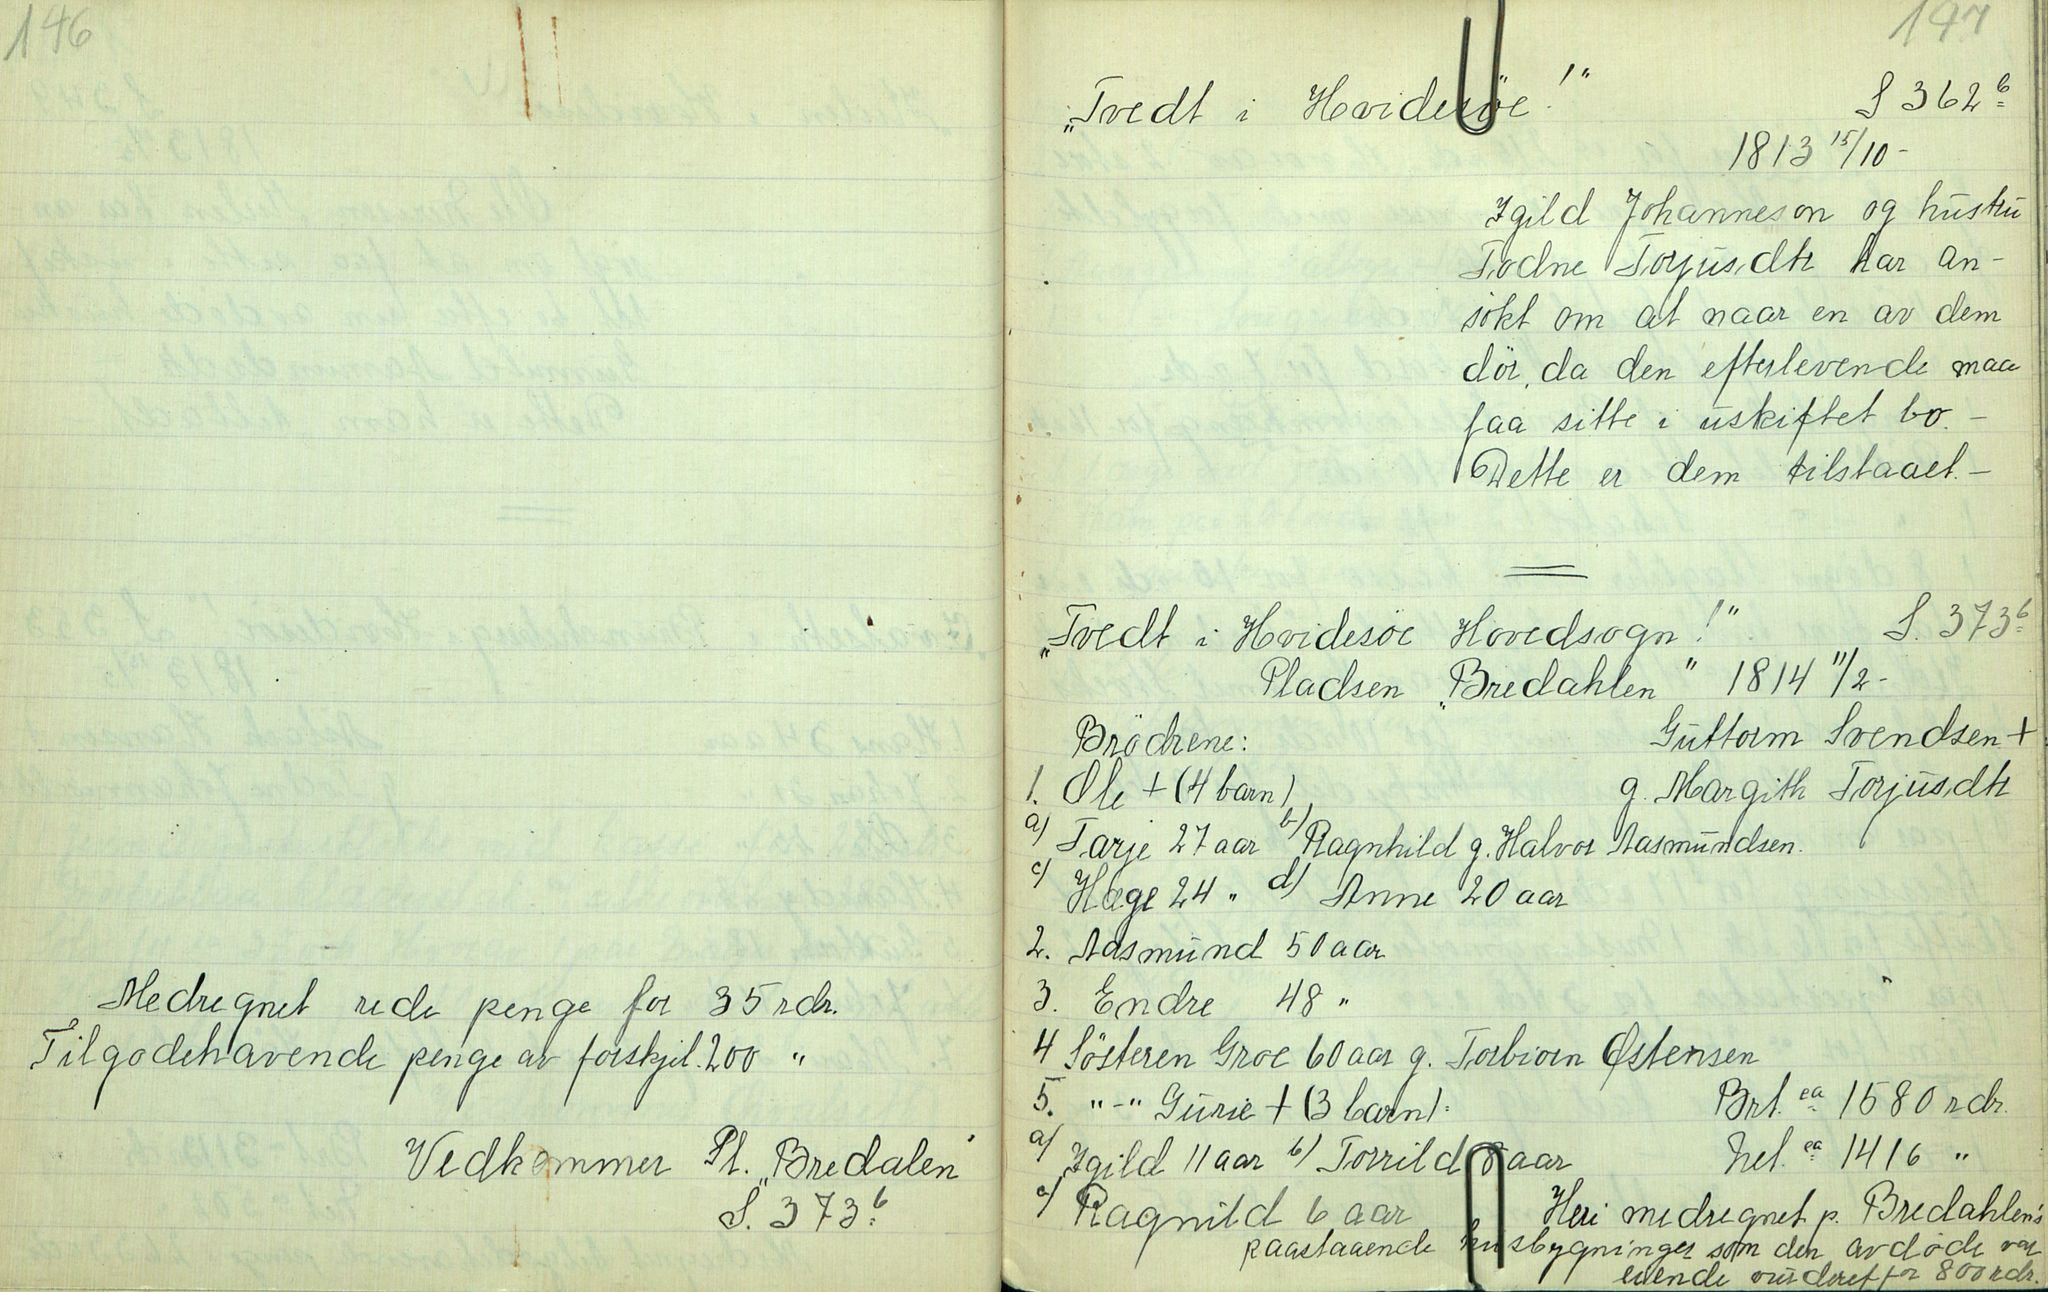 146
Medregnet rede penge for 35 rdr.
Tilgodehavende penge av forskjel. 200 "
Vedkommer Pl. „Bredalen"
S. 373 b
147
„Tvedt i Hvidesöe!" S 362 b
1813 15/10-
Igild Johanneson og hustru
Todne Torjusdtr har an-
søkt om at naar en av dem
dör, da den efterlevende maa
faa sitte i uskiftet bo. -
Dette er dem tilstaaet. -
„Tvedt i Hvidesöe Hovedsogn!" S. 373 b
Pladsen „Bredahlen" 1814 11/2-
Brödrene: Guttorm Svendsen +
1. Ole + (4 barn) g. Margith Torjusdtr
a) Tarje 27 aar b) Ragnhild g. Halvor Aasmundsen.
c) Hæge 24 " d) Anne 20 aar
2. Aasmund 50 aar
3. Endre 48 "
4 Sösteren Groe 60 aar g. Torbiorn Østensen
5. "-" Gurie + (3 barn): Brt. ca 1580 rdr.
a) Igild 11 aar b) Torrild 8 aar Net. ca 1416 "
c) Ragnild 6 aar Heri medregnet p. Bredahlen's
paastaaende husbygninger som den avdöde var
eiende vurderet for 800 rdr.